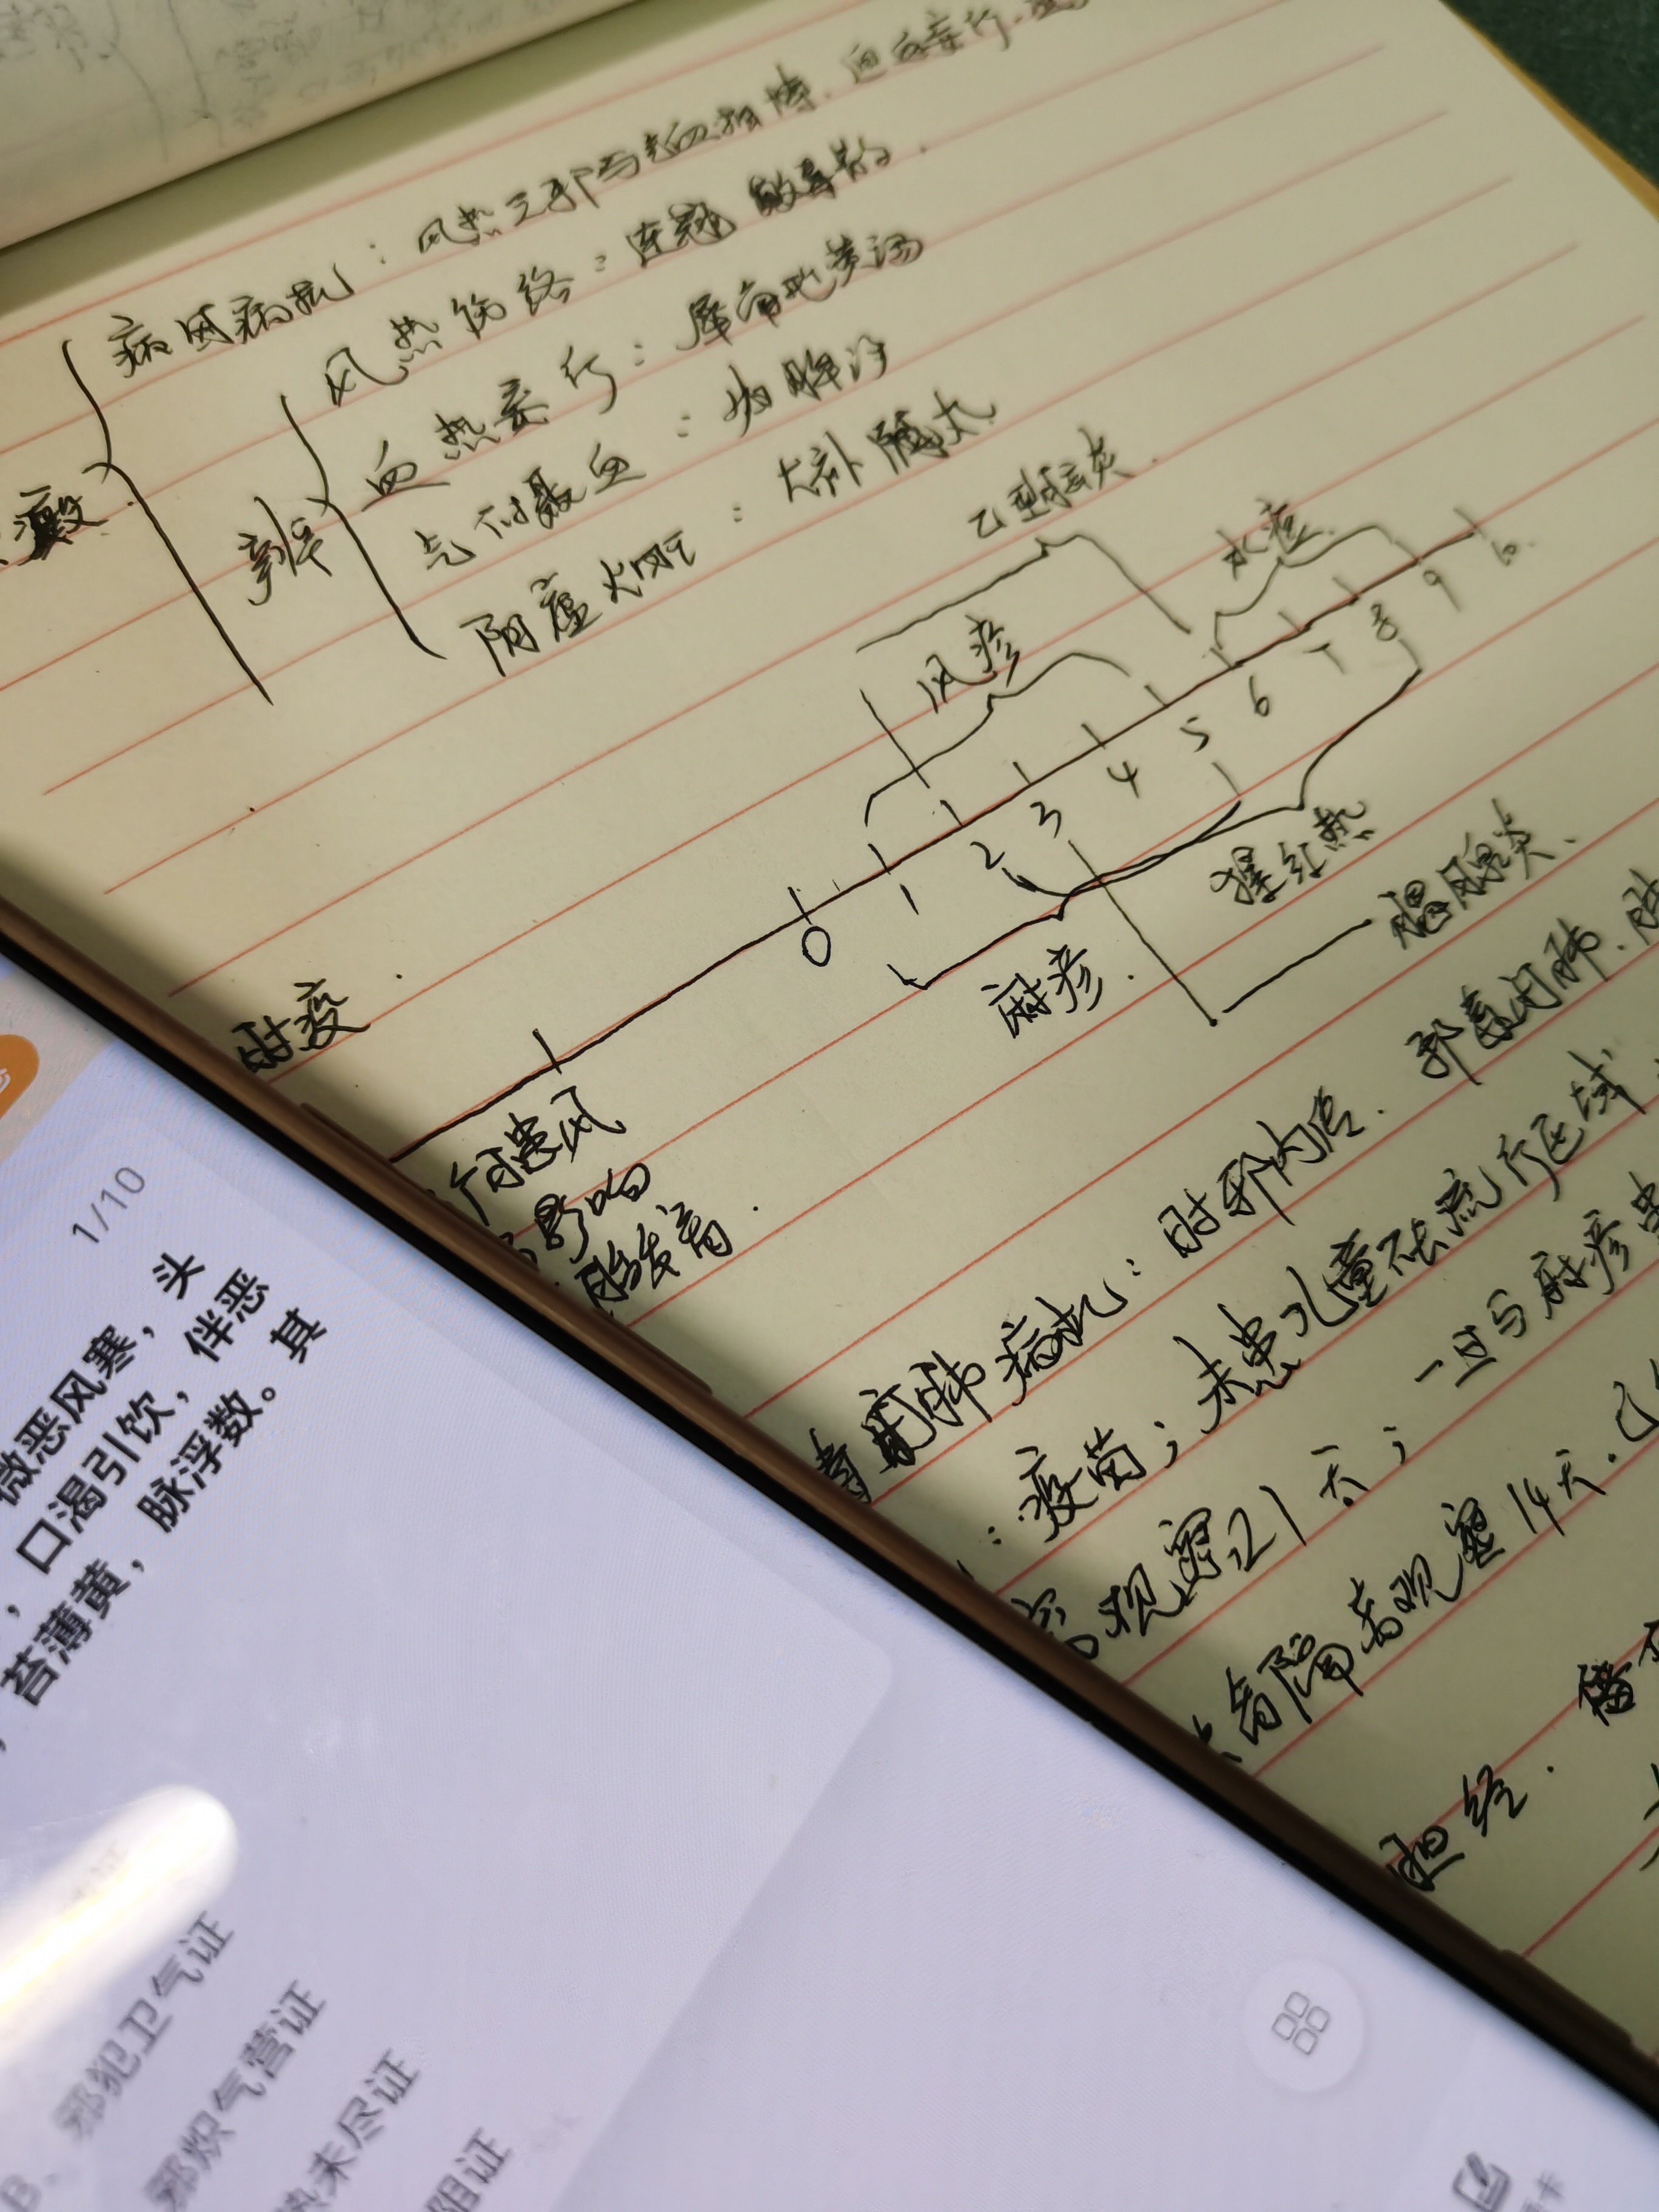 病因病机：风热之邪与气血相搏.
风热伤络：连翘败毒散.
血热妄行：犀角地黄汤
气不摄血：归脾汤
阴虚火旺：大补阴丸
癜
辨
乙型脑炎.
水痘.
风疹
0 1 2 3 4 5 6 7 8 9 10.
猩红热
麻疹.
腮腺炎、
时疫
患风
影响
胎发育.
毒闭肺病机：时邪内陷. 邪毒闭肺.
：疫苗；未患儿童不去流行区域
观察21天；一旦与麻疹患
者隔离观察14天.已
胆经.
1/10
微恶风寒，头
，口渴引饮，伴恶
苔薄黄，脉浮数。其
B、邪犯卫气证
邪炽气营证
热未尽证
阻证
卡